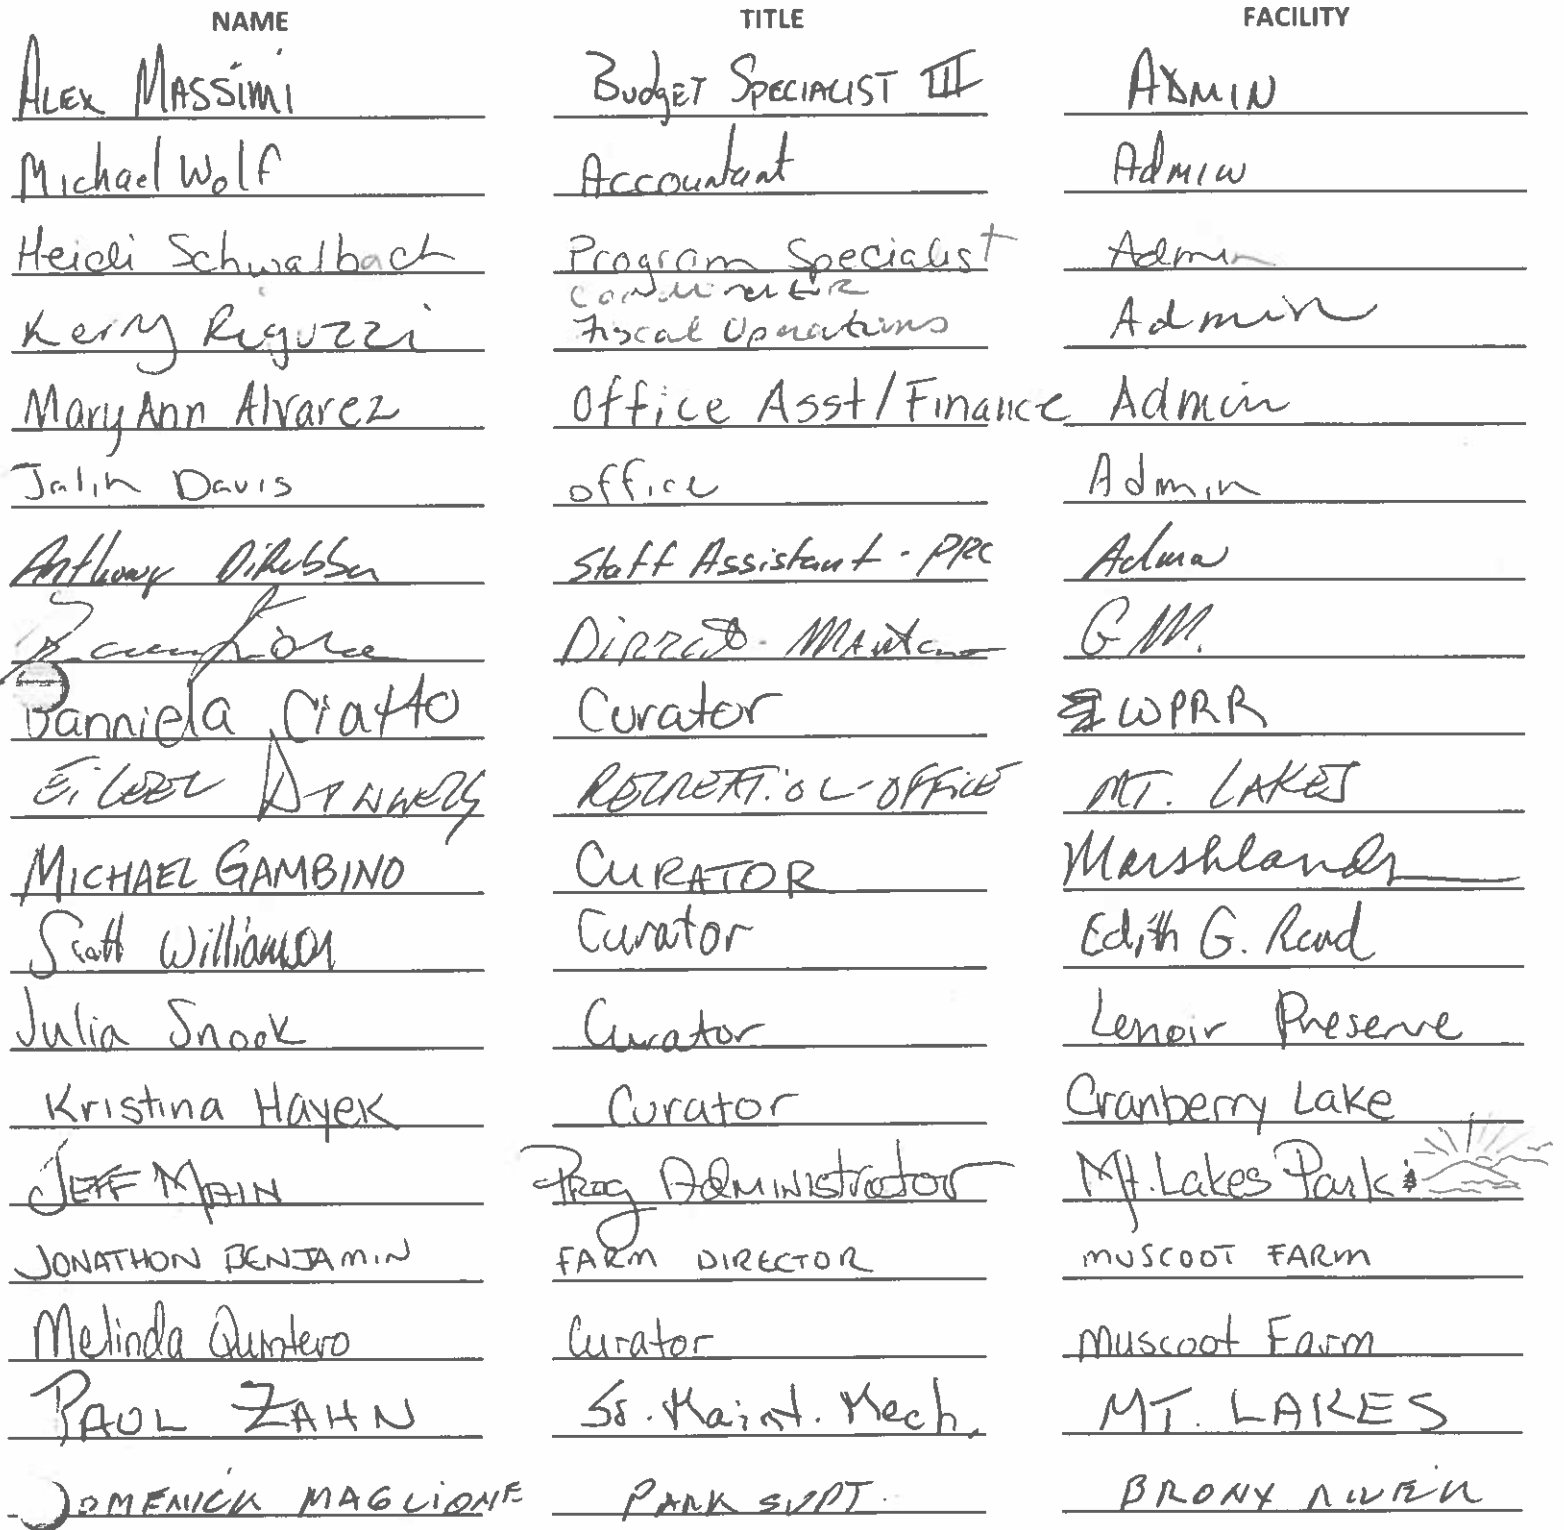 NAME TITLE FACILITY
ALEX MASSIMI BUDGET SPECIALIST III ADMIN
Michael Wolf Accountant Admin
Heidi Schwalbach Program Specialist Admin
Kerry Riguzzi Fiscal Operations Admin
MaryAnn Alvarez Office Asst/Finance Admin
Jalin Davis office Admin
Anthony Staff Assistant - PRC Admin
G.M.
Danniela Ciatto Curator WPRR
MT. LAKES
MICHAEL GAMBINO CURATOR Marshlands
Scott Williamson Curator Edith G. Read
Julia Snook Curator Lenoir Preserve
Kristina Hayek Curator Cranberry Lake
JEFF MAIN Prog Administrator Mt. Lakes Park
JONATHON BENJAMIN FARM DIRECTOR MUSCOOT FARM
Melinda Quintero Curator Muscoot Farm
PAUL ZAHN Sr. Maint. Mech. MT. LAKES
DOMENICK MAGLIONE PARK SUPT. BRONX RIVER